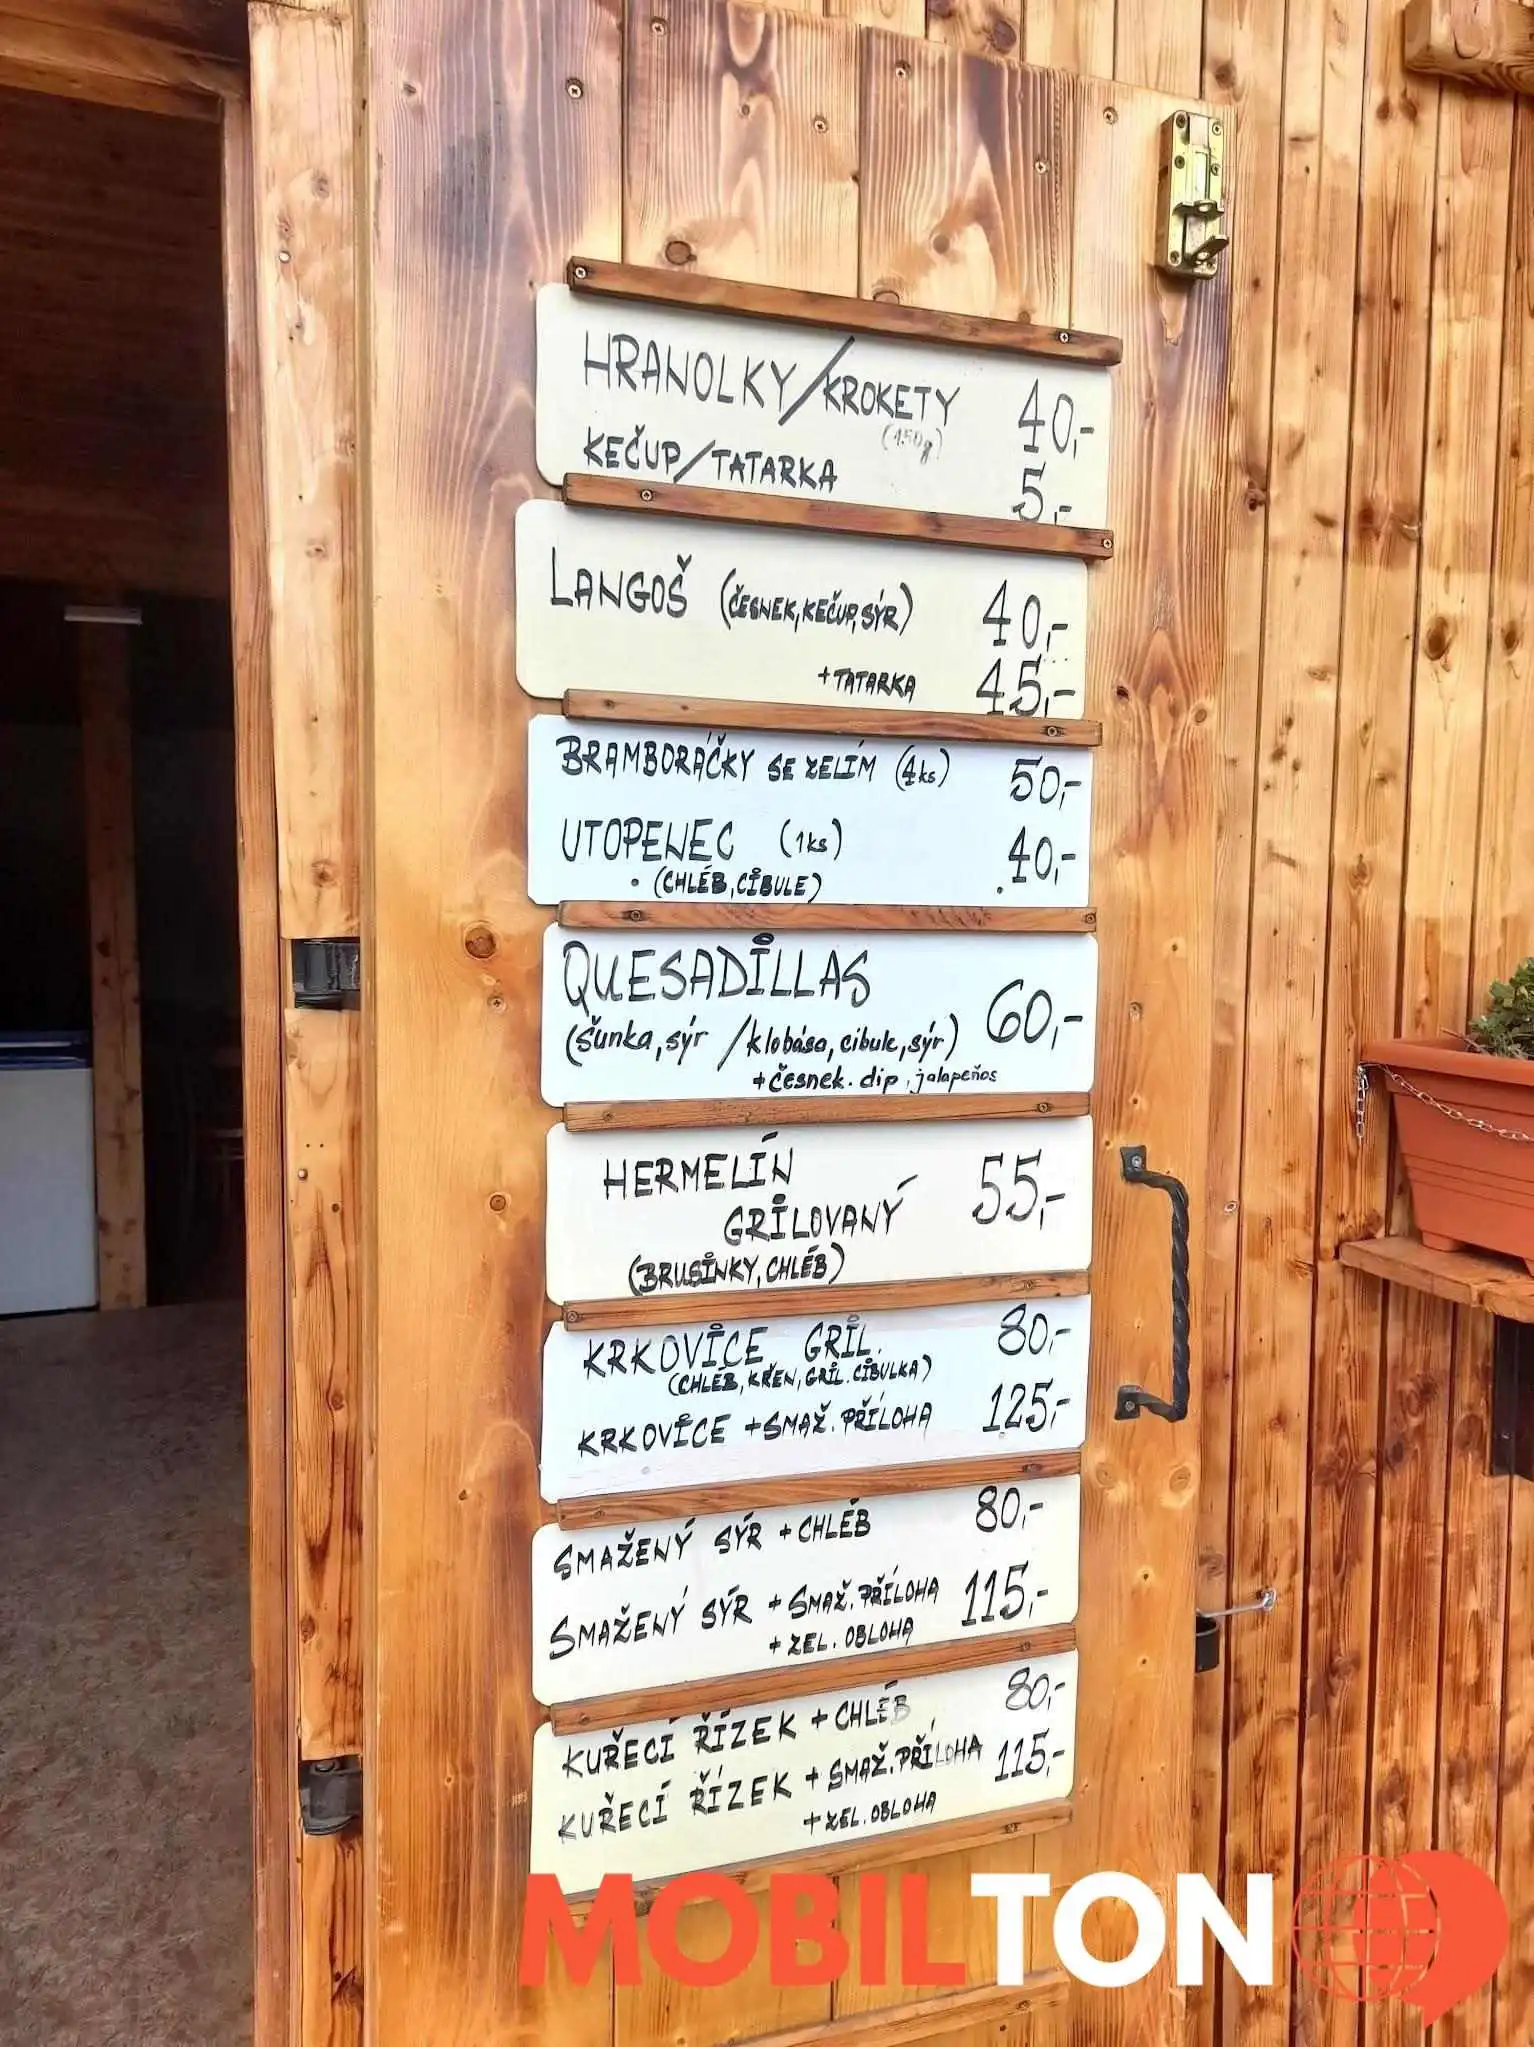 HRANOLKY/KROKETY 40,-
(150g)
KEČUP/TATARKA 5,-
LANGOŠ (ČESNEK, KEČUP, SÝR) 40,-
+TATARKA 45,-
BRAMBORÁČKY SE ZELÍM (4ks) 50,-
UTOPENEC (1ks) 40,-
(CHLÉB, CIBULE)
QUESADILLAS 60,-
(šunka, sýr / klobása, cibule, sýr)
+česnek. dip, jalapeňos
HERMELÍN
GRILOVANÝ 55,-
(BRUSINKY, CHLÉB)
KRKOVICE GRIL. 80,-
(CHLÉB, KŘEN, GRIL. CIBULKA)
KRKOVICE +SMAŽ. PŘÍLOHA 125,-
SMAŽENÝ SÝR + CHLÉB 80,-
SMAŽENÝ SÝR + SMAŽ. PŘÍLOHA 115,-
+ ZEL. OBLOHA
KUŘECÍ ŘÍZEK + CHLÉB 80,-
KUŘECÍ ŘÍZEK + SMAŽ. PŘÍLOHA 115,-
+ ZEL. OBLOHA
MOBILTON